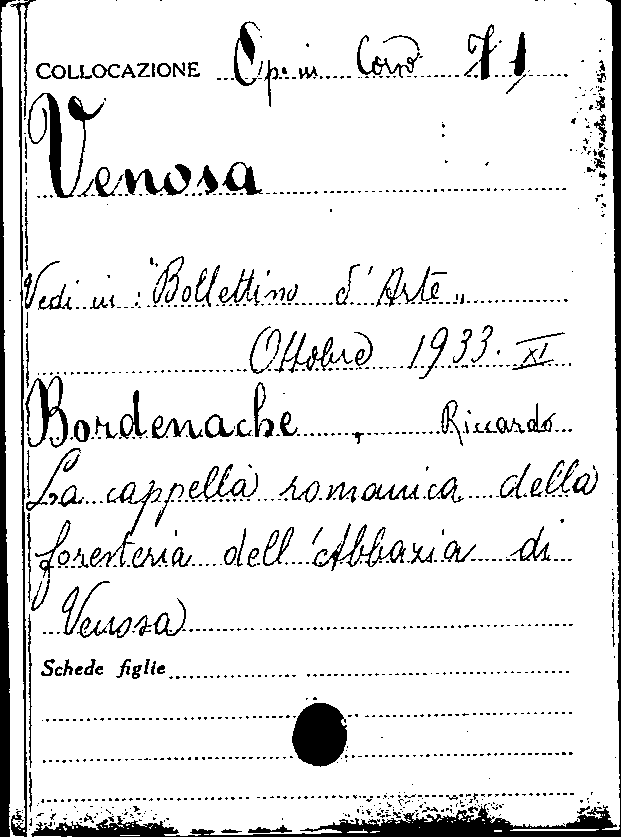 COLLOCAZIONE Op. in Corso 71
Venosa
Vedi in: "Bollettino d'Arte„
Ottobre 1933. XI
Bordenache, Riccardo
La cappella romanica della
foresteria dell'Abbazia di
Venosa
Schede figlie